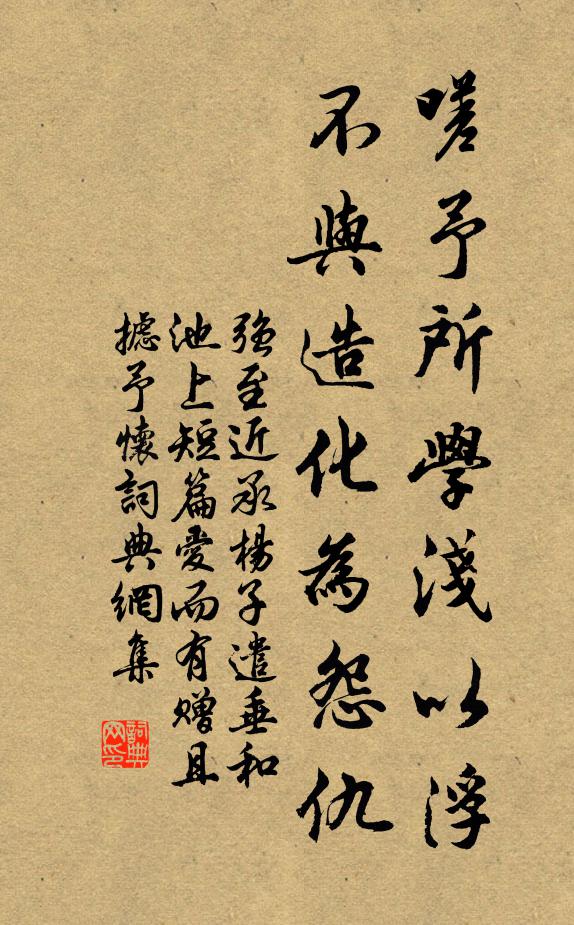 嗟予所學淺以浮
不與造化為怨仇
強至近承楊子遣垂和
池上短篇愛而有贈且
攄予懷詞典網集
詞典
网印